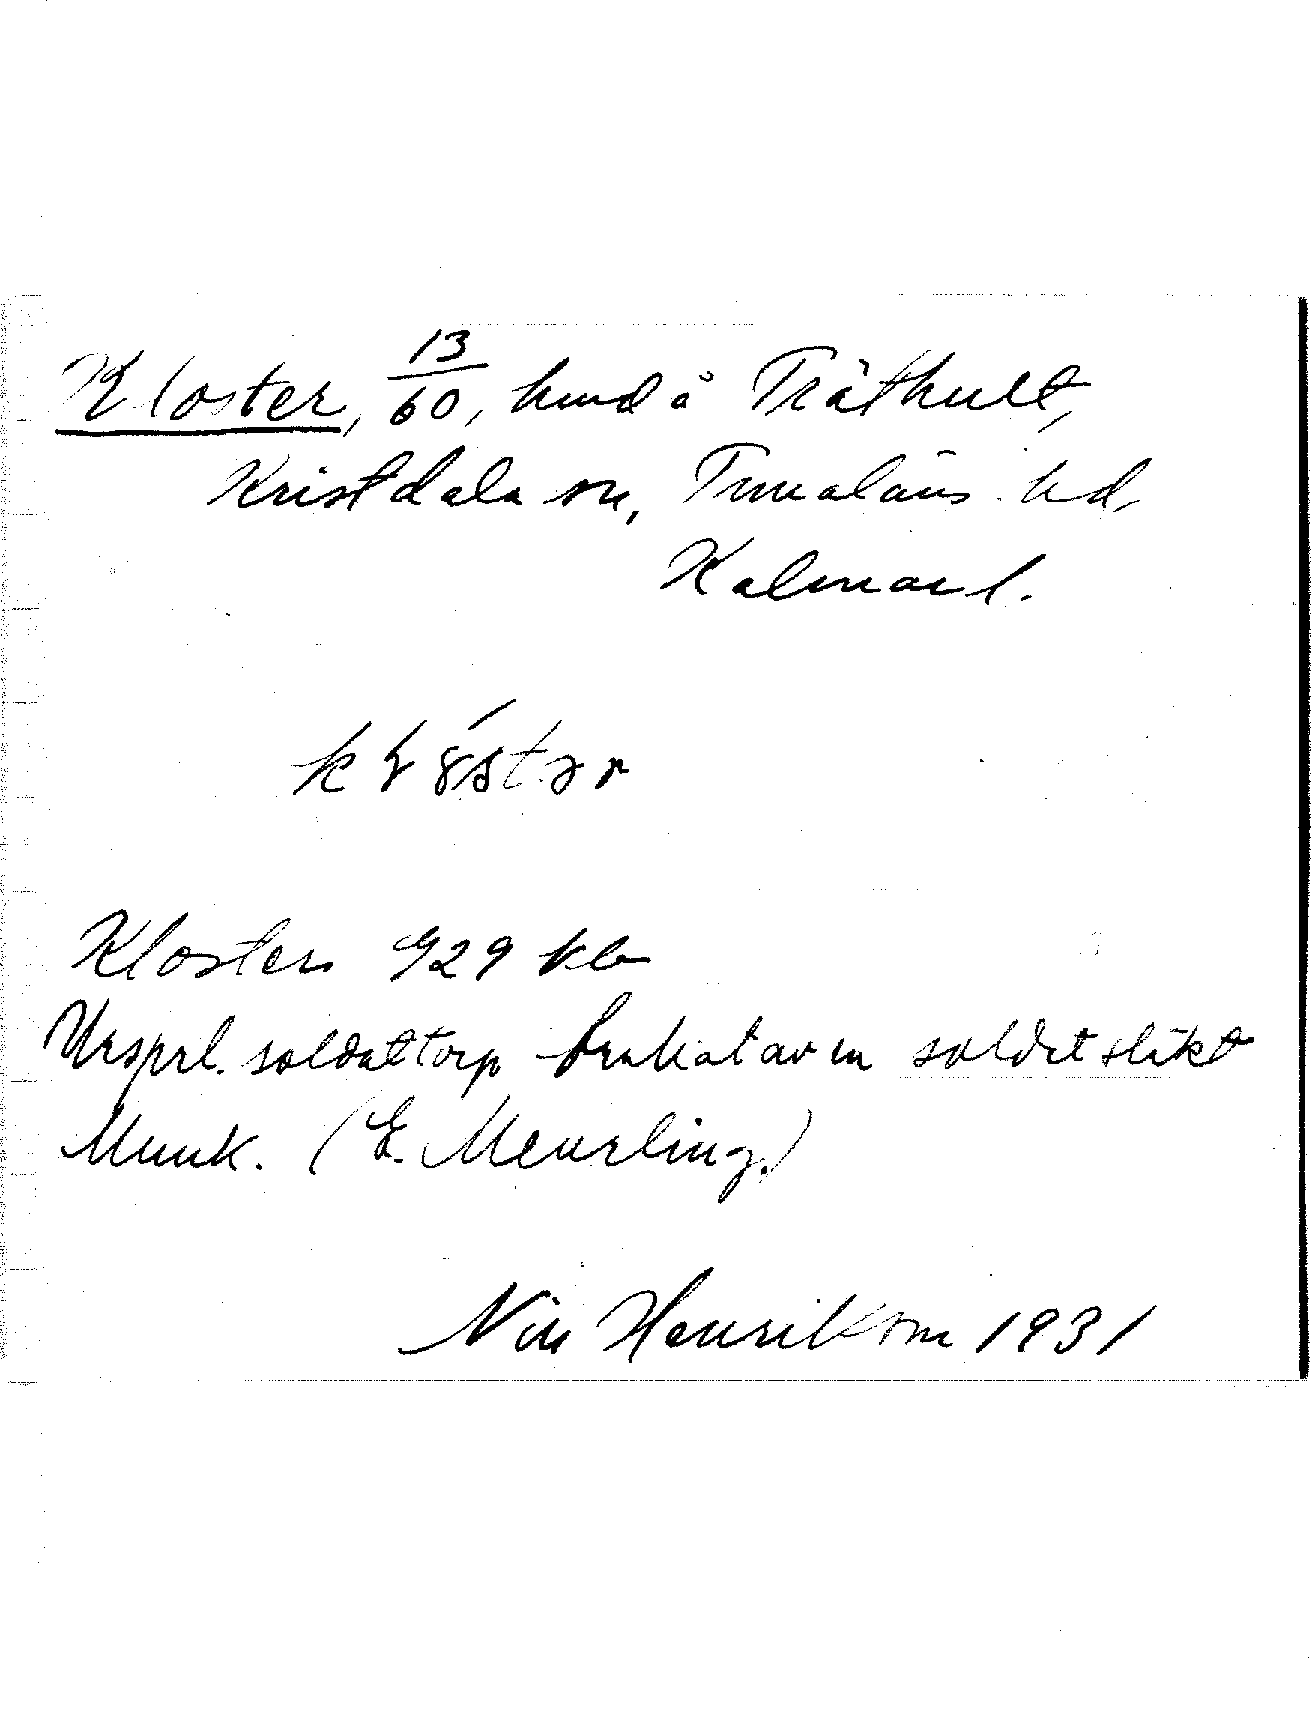 Kloster, 13/60, hmd å Träthult,
Kristdala sn, Tunaläns hd,
Kalmar l.
Kloster 929 kb
Ursprl. soldattorp brukat av en soldatsläkt
Munk. (E. Meurling.)
Nils Henrikson 1931